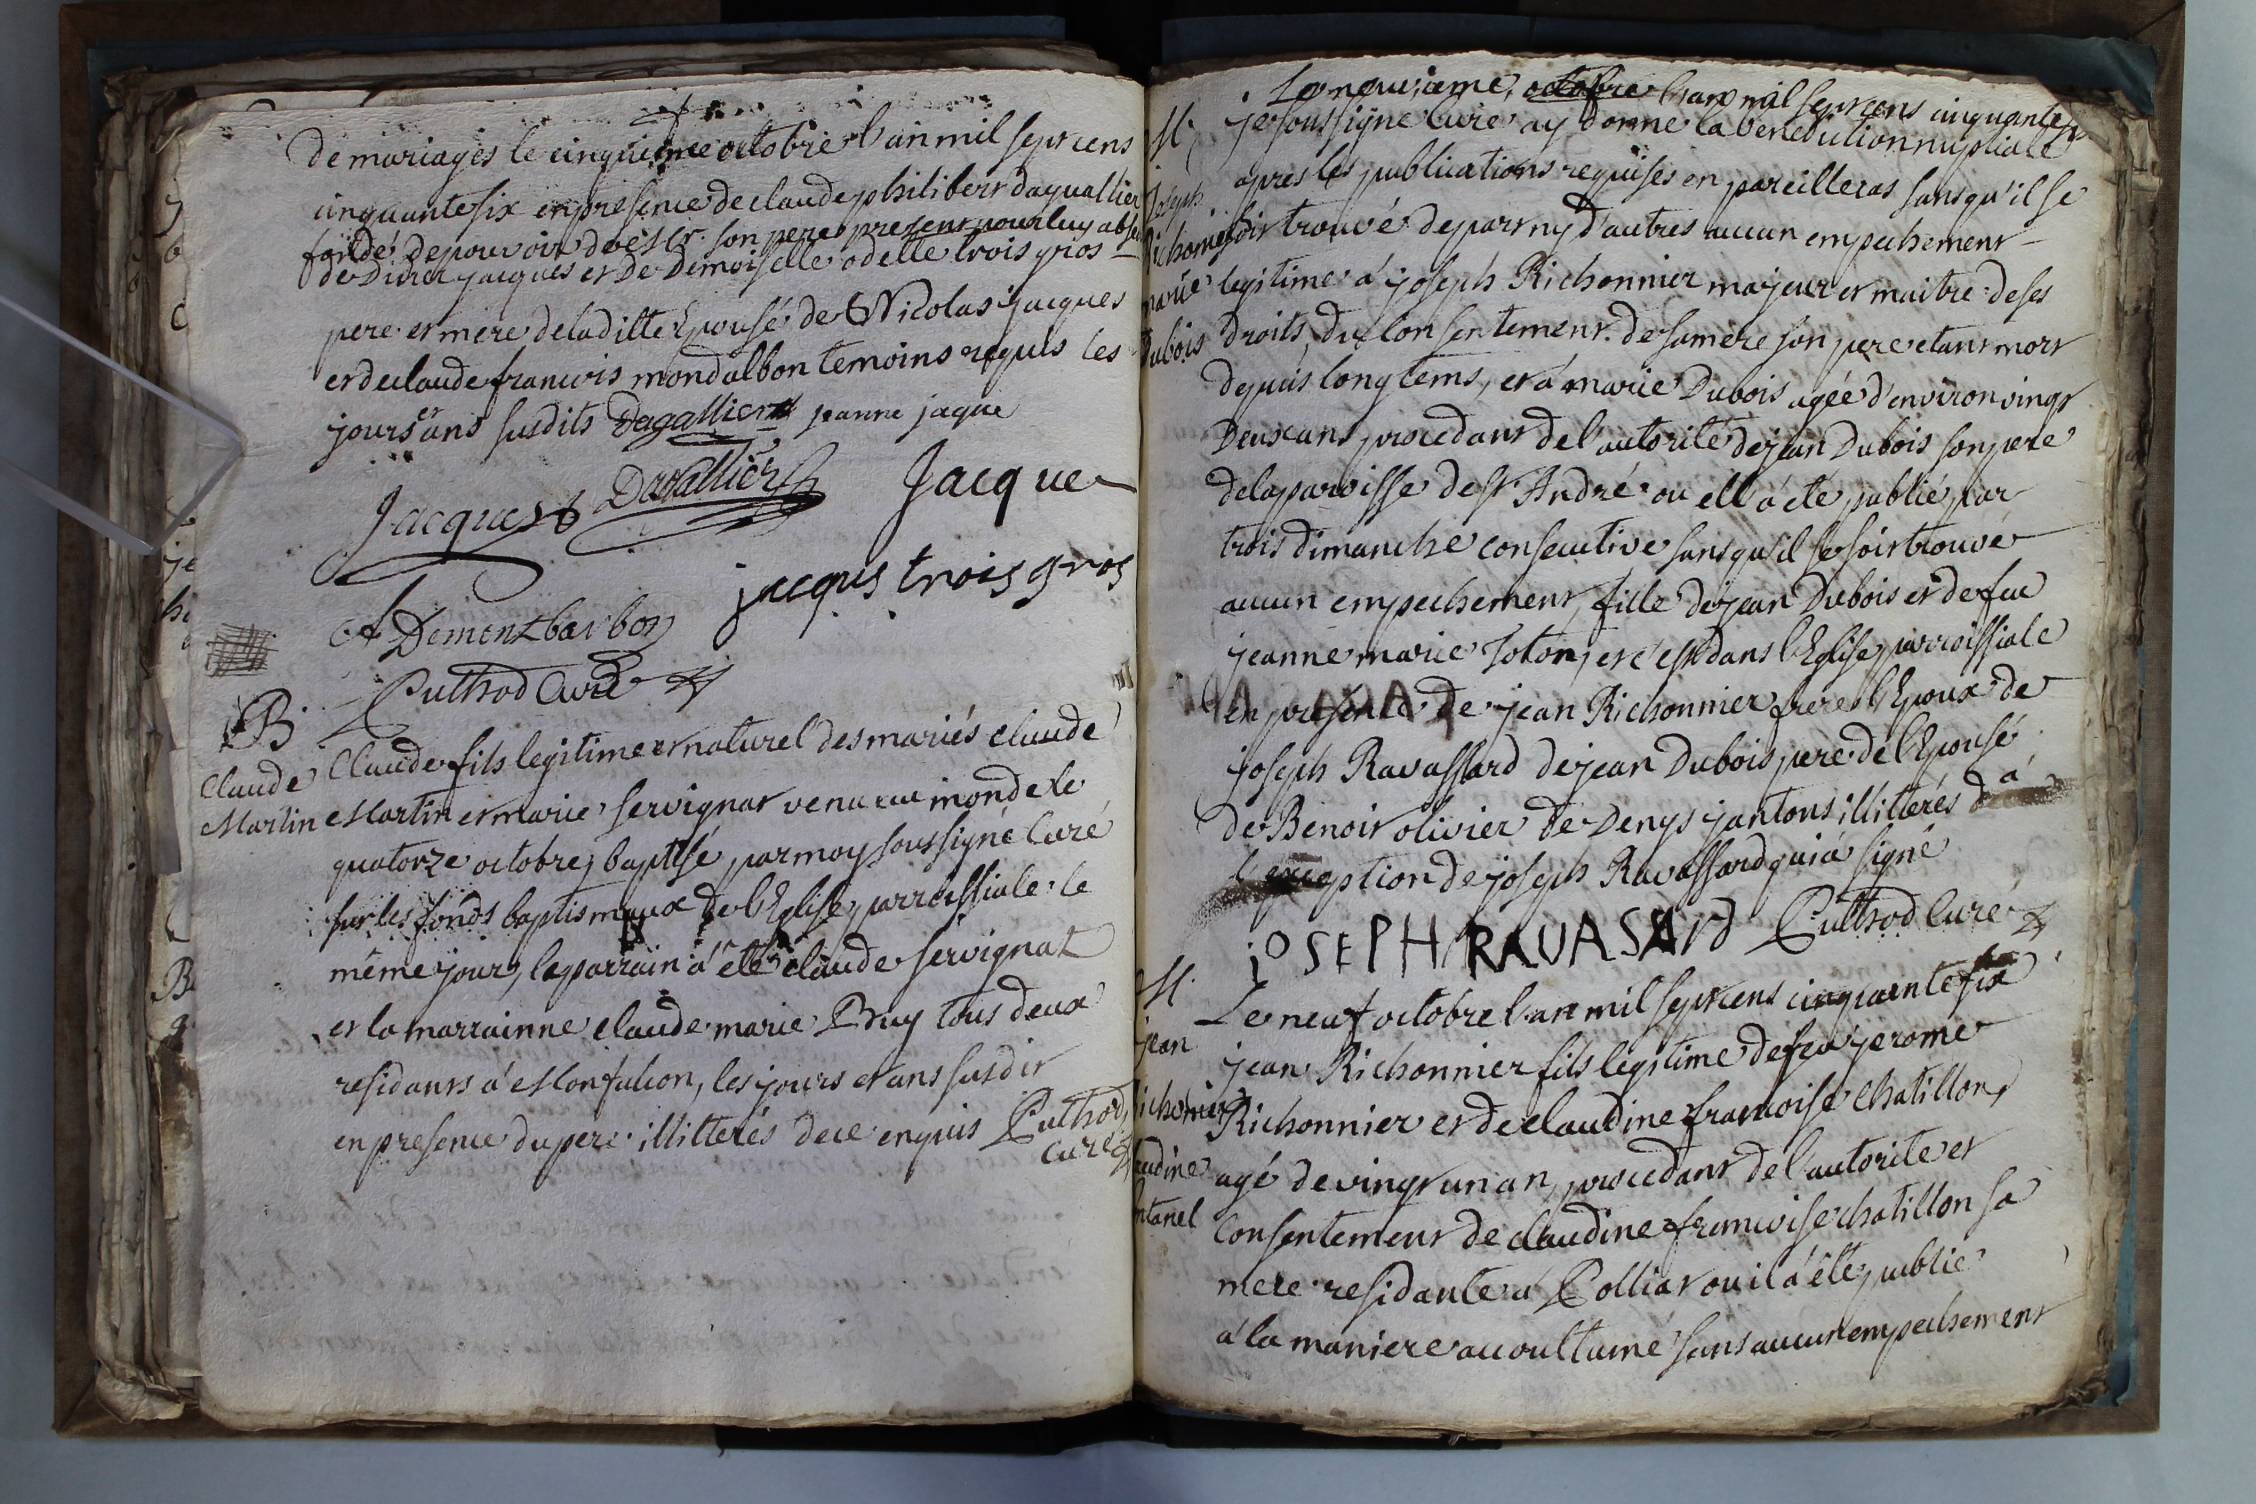 de mariages le cinquieme octobre l'an mil sept cens
cinquante six en presence de claude philibert daguallier
fondé de pouvoir de son pere present pour luy
de jacques et de Demoiselle odette trois gros
pere et mere de la ditte Epousé de Nicolas jacques
et de claude francois mondalbon temoins requis les
jours et ans susdits Dagallier jeanne jaque
Jacques Dagallier Jacque
jacques trois gros
Puthod Curé
B
Claude
Martin
Claude fils legitime et naturel des mariés claude
Martin et marie servignat venu au monde le
quatorze octobre, baptisé par moy soussigné Curé
sur les fonds baptismaux de l'Eglise parroissiale le
même jour, le parrain a été claude servignat
et la marrainne claude marie Buy tous deux
residants a Monfalcon, les jours et ans susdit
en presence du pere illitterés de ce enquis Puthod
Curé
M.
joseph
Richonier
marie
Dubois
Le neuvieme octobre l'an mil sept cens cinquante
je soussigné Curé ay donné la benediction nuptiale
apres les publications requises en pareil cas sans qu'il se
soit trouvé de part ny d'autres aucun empechement
legitime a joseph Richonnier majeur et maitre de ses
droits, du consentement de sa mere son pere etant mort
depuis longtems, et a marie Dubois agée d'environ vingt
Deux ans procedant de l'autorité de jean Dubois son pere
de la paroisse de st André ou ell a eté publié par
trois dimanche consecutive sans qu'il se soit trouvé
aucun empechement, fille de jean Dubois et de feue
jeanne marie Toton, et c'est dans l'Eglise parroissiale
en presence de jean Richonnier frere l'Epoux de
joseph Ravassard de jean Dubois pere de l'Epousé
de Benoit olivier de Denys jantons illitterés a
l'exception de joseph Ravassard qui a signé
jOSEPH RAVASArd Puthod Curé
M.
jean
ichonier
audine
ntanel
Le neuf octobre l'an mil sept cens cinquante six
jean Richonnier fils legitime de feu jerome
Richonnier et de claudine francoise Chatillon,
agé de vingt un an, procedant de l'autorite et
Consentement de claudine francoise chatillon sa
mere residante a Polliat ou il a été publié
a la maniere accoultumé sans aucun empechement